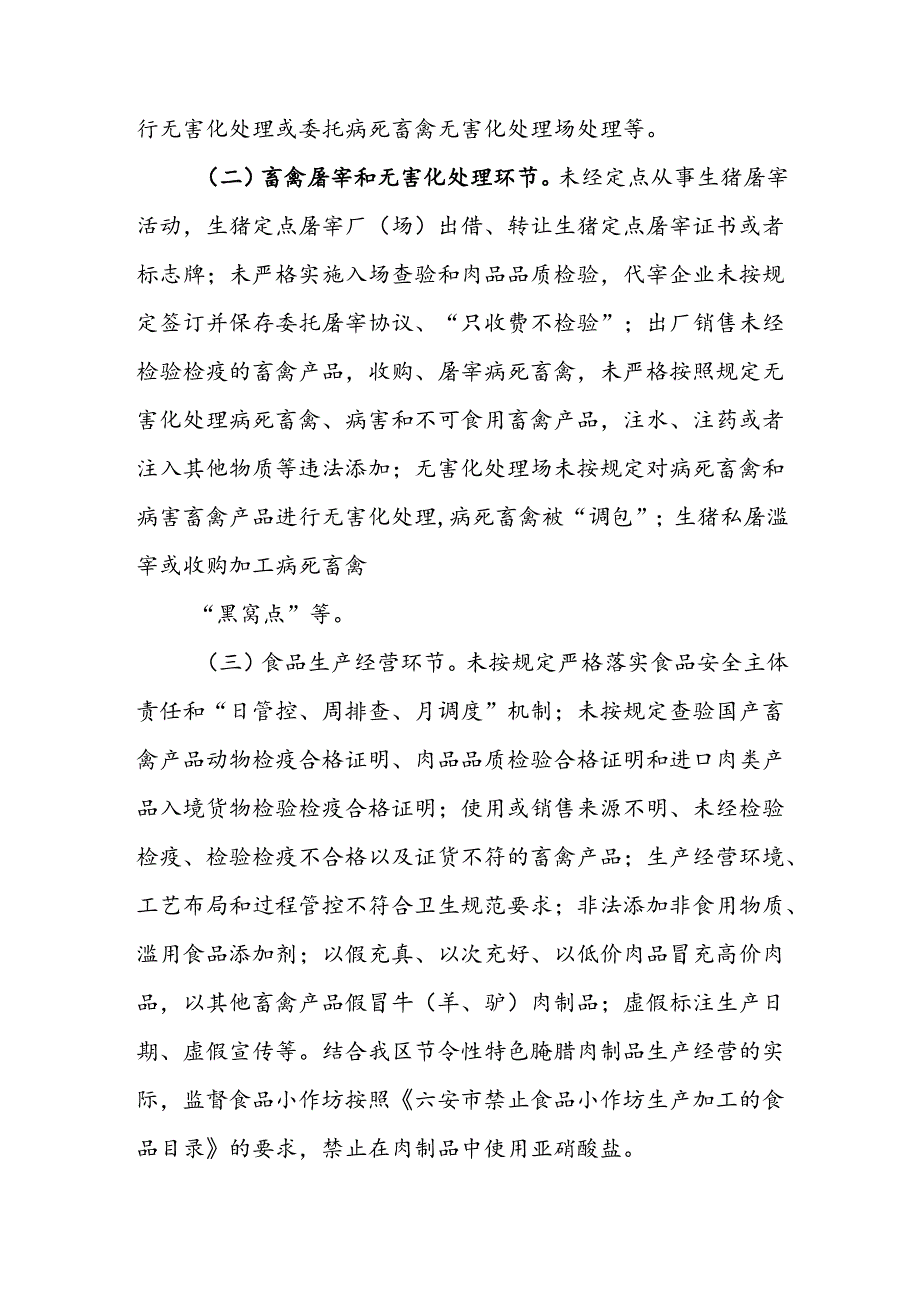 行无害化处理或委托病死畜禽无害化处理场处理等。
（二）畜禽屠宰和无害化处理环节。未经定点从事生猪屠宰
活动，生猪定点屠宰厂（场）出借、转让生猪定点屠宰证书或者
标志牌；未严格实施入场查验和肉品品质检验，代宰企业未按规
定签订并保存委托屠宰协议、“只收费不检验”；出厂销售未经
检验检疫的畜禽产品，收购、屠宰病死畜禽，未严格按照规定无
害化处理病死畜禽、病害和不可食用畜禽产品，注水、注药或者
注入其他物质等违法添加；无害化处理场未按规定对病死畜禽和
病害畜禽产品进行无害化处理,病死畜禽被“调包”；生猪私屠滥
宰或收购加工病死畜禽
“黑窝点”等。
（三）食品生产经营环节。未按规定严格落实食品安全主体
责任和“日管控、周排查、月调度”机制；未按规定查验国产畜
禽产品动物检疫合格证明、肉品品质检验合格证明和进口肉类产
品入境货物检验检疫合格证明；使用或销售来源不明、未经检验
检疫、检验检疫不合格以及证货不符的畜禽产品；生产经营环境、
工艺布局和过程管控不符合卫生规范要求；非法添加非食用物质、
滥用食品添加剂；以假充真、以次充好、以低价肉品冒充高价肉
品，以其他畜禽产品假冒牛（羊、驴）肉制品；虚假标注生产日
期、虚假宣传等。结合我区节令性特色腌腊肉制品生产经营的实
际，监督食品小作坊按照《六安市禁止食品小作坊生产加工的食
品目录》的要求，禁止在肉制品中使用亚硝酸盐。